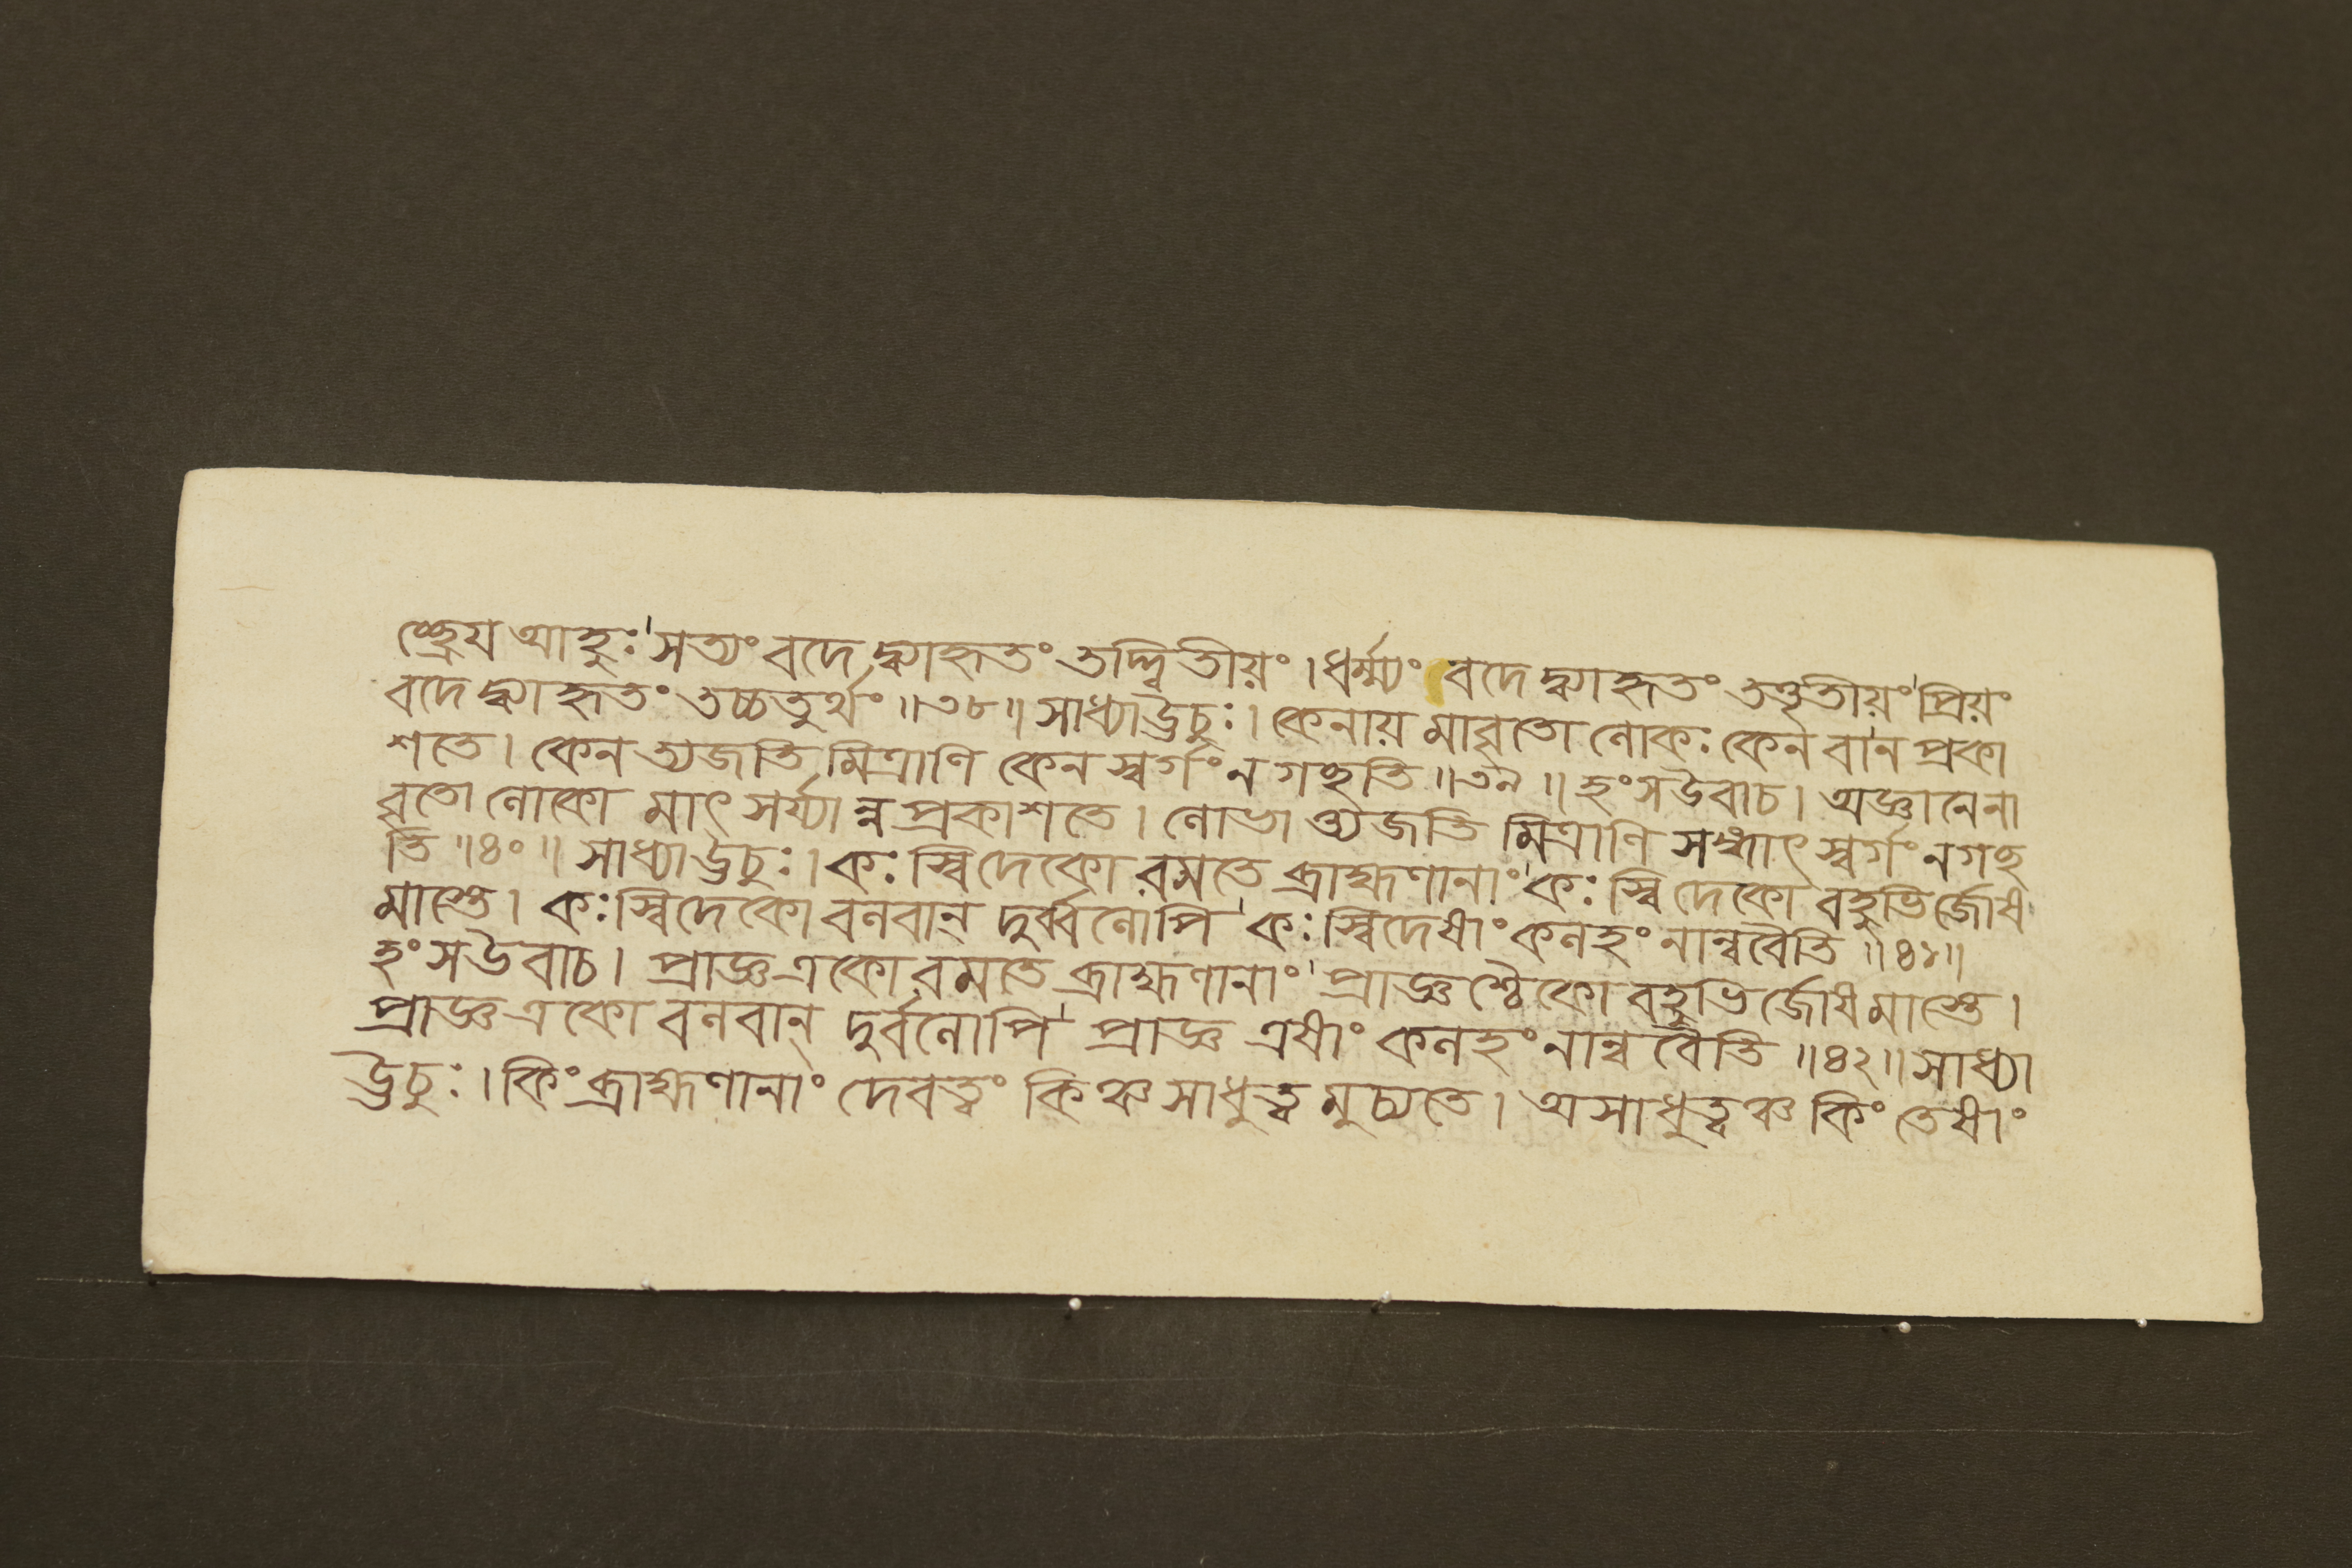 চ্ছ্রেয আহুঃ।সত্যং বদেদ্ব্যাহৃতং তদ্দ্বিতীয়ং।ধর্ম্ম্যং বদেদ্ব্যাহৃতং তত্তৃতীয়ং।প্রিয়ং
বদেদ্ব্যাহৃতং তচ্চতুর্থং॥৩৮॥সাধ্যাঊচুঃ। কেনায়মাবৃতো লোকঃ কেন বা ন প্রকা
শতে। কেন ত্যজতি মিত্রাণি কেন স্বর্গং ন গচ্ছতি॥৩৯॥ হংসউবাচ। অজ্ঞানেনা
বৃতো লোকো মাৎসর্য্যান্ন প্রকাশতে। লোভাত্ত্যজতি মিত্রাণি সঙ্গাৎ স্বর্গং নগচ্ছ
তি॥৪০॥ সাধ্যাঊচুঃ।কঃ স্বিদেকো রমতে ব্রাহ্মণানাং।কঃ স্বিদেকো বহুভির্জোষ
মাস্তে। কঃ স্বিদেকো বলবান্ দুর্ব্বলোপি।কঃ স্বিদেষাং কলহং নান্ববৈতি॥৪১॥
হংসউবাচ। প্রাজ্ঞ একো রমতে ব্রাহ্মণানাং।প্রাজ্ঞশ্চৈকো বহুভির্জোষমাস্তে।
প্রাজ্ঞ একো বলবান্ দুর্বলোপি।প্রাজ্ঞ এষাং কলহং নান্ববৈতি॥৪২॥সাধ্যা
ঊচুঃ। কিং ব্রাহ্মণানাং দেবত্বং কিঞ্চ সাধুত্বমুচ্যতে। অসাধুত্বঞ্চ কিং তেষাং